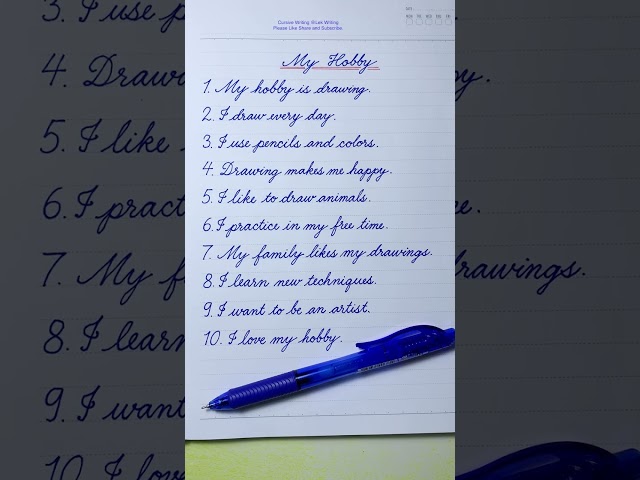 Cursive Writing @Lek Writing
Please Like Share and Subscribe
My Hobby
1. My hobby is drawing.
2. I draw every day.
3. I use pencils and colors.
4. Drawing makes me happy.
5. I like to draw animals.
6. I practice in my free time.
7. My family likes my drawings.
8. I learn new techniques.
9. I want to be an artist.
10. I love my hobby.